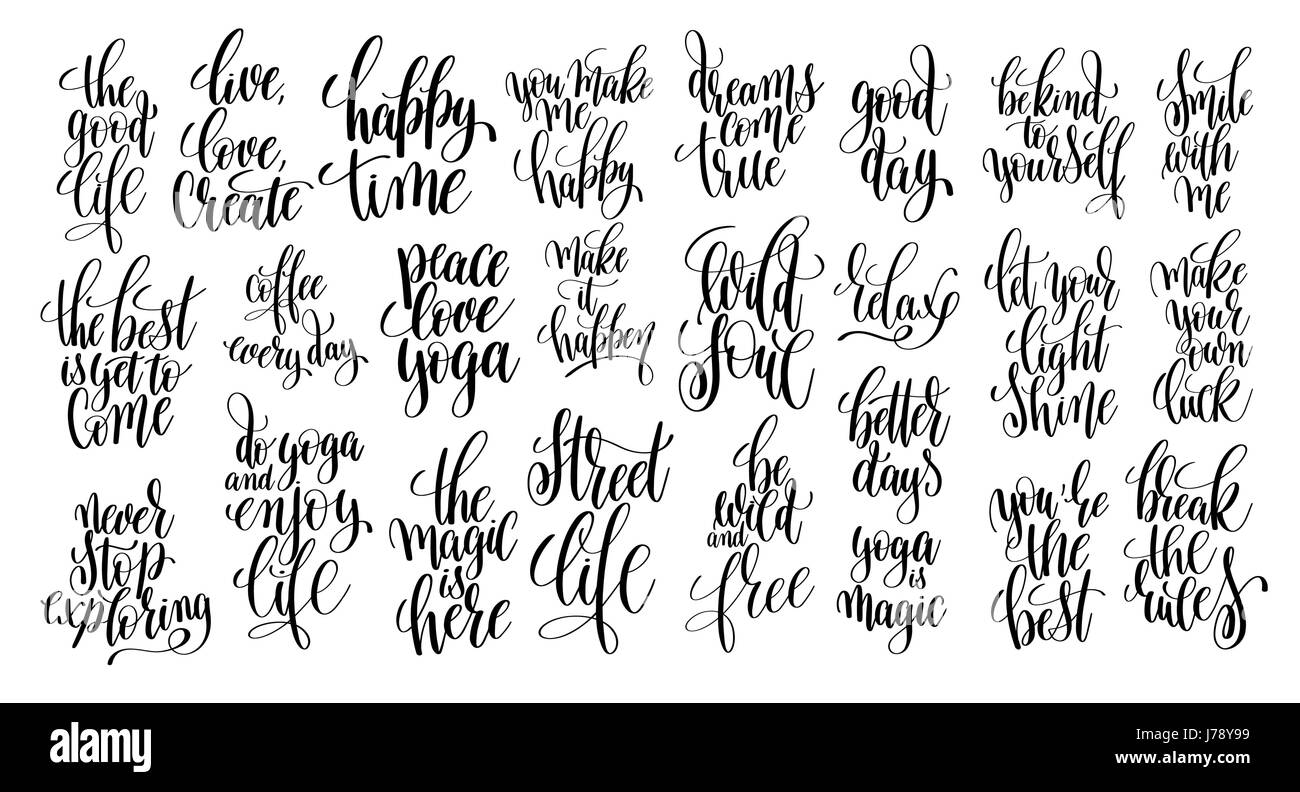 the
good
life
live,
love,
create
happy
time
you make
me
happy
dreams
come
true
good
day
be kind
to
yourself
smile
with
me
the best
is yet to
come
coffee
every day
peace
love
yoga
make
it
happen
wild
soul
relax
let your
light
shine
make
your
own
luck
never
stop
exploring
do yoga
and
enjoy
life
the
magic
is
here
street
life
be
wild
and
free
better
days
yoga
is
magic
you're
the
best
break
the
rules
alamy
Image ID: J78Y99
www.alamy.com